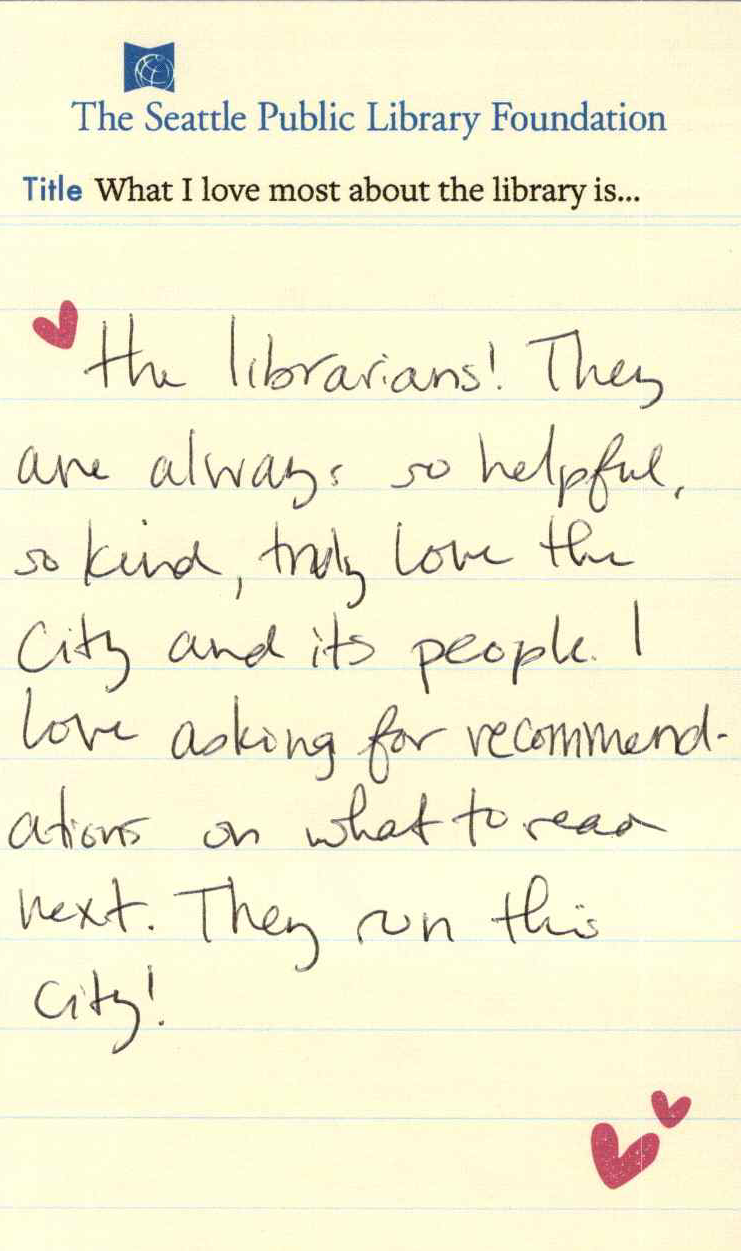 The Seattle Public Library Foundation
Title What I love most about the library is...
the librarians! They
are always so helpful,
so kind, truly love the
City and its people. I
love asking for recommend-
ations on what to read
next. They run this
City!